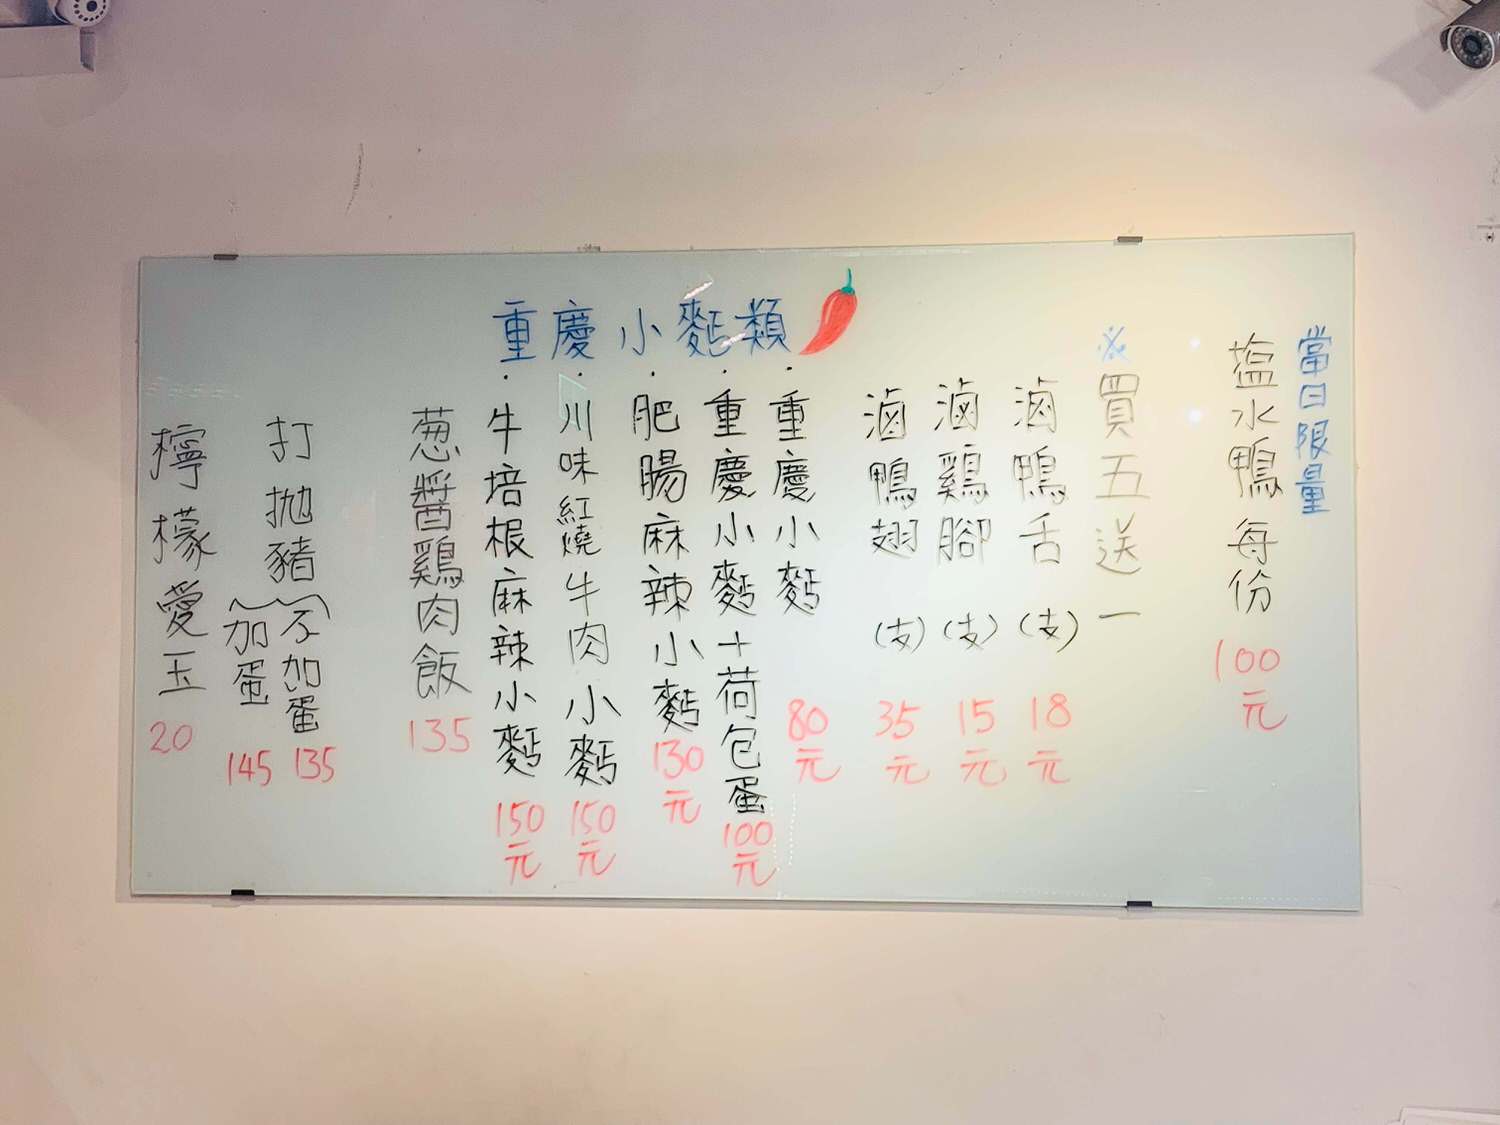 當日限量
塩水鴨 每份 100元
※買五送一
滷鴨舌(支) 18元
滷鷄腳(支) 15元
滷鴨翅(支) 35元
重慶小麵類
·重慶小麵 80元
·重慶小麵+荷包蛋 100元
·肥腸麻辣小麵 130元
·川味紅燒牛肉小麵 150元
·牛培根麻辣小麵 150元
葱醬鷄肉飯 135
打拋豬
不加蛋 135
加蛋 145
檸檬愛玉 20